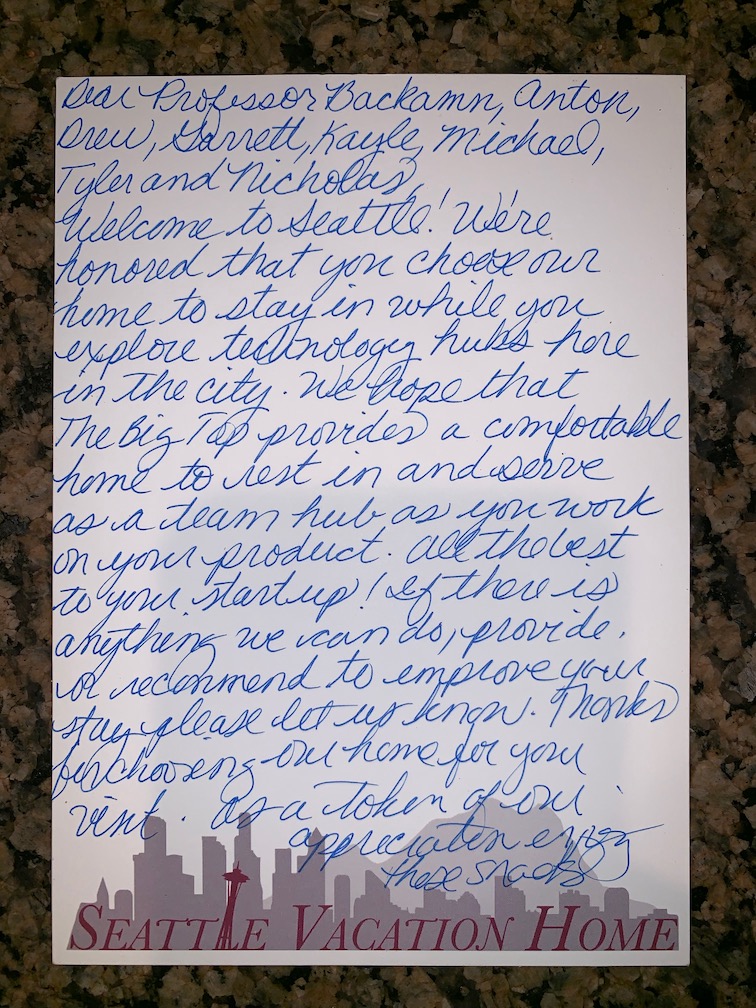 Dear Professor Backamn, Anton,
Drew, Garrett, Kayle, Michael,
Tyler and Nicholas,
Welcome to Seattle! We're
honored that you choose our
home to stay in while you
explore technology hubs here
in the city. We hope that
The Big Tap provides a comfortable
home to rest in and serve
as a team hub as you work
on your product. All the best
to your startup! If there is
anything we can do, provide,
or recommend to improve your
stay please let us know. Thanks
for choosing our home for your
visit. As a token of our
appreciation enjoy
these snacks
SEATTLE VACATION HOME